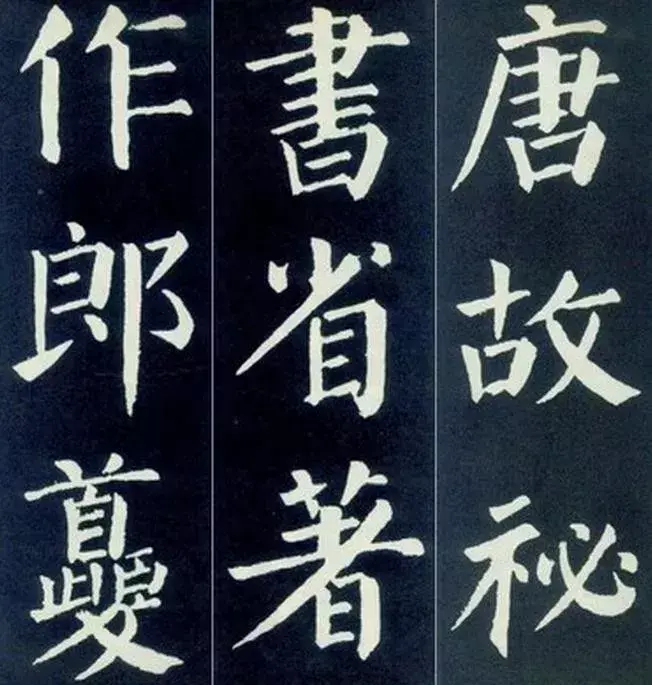 唐故祕
書省著
作郎夔